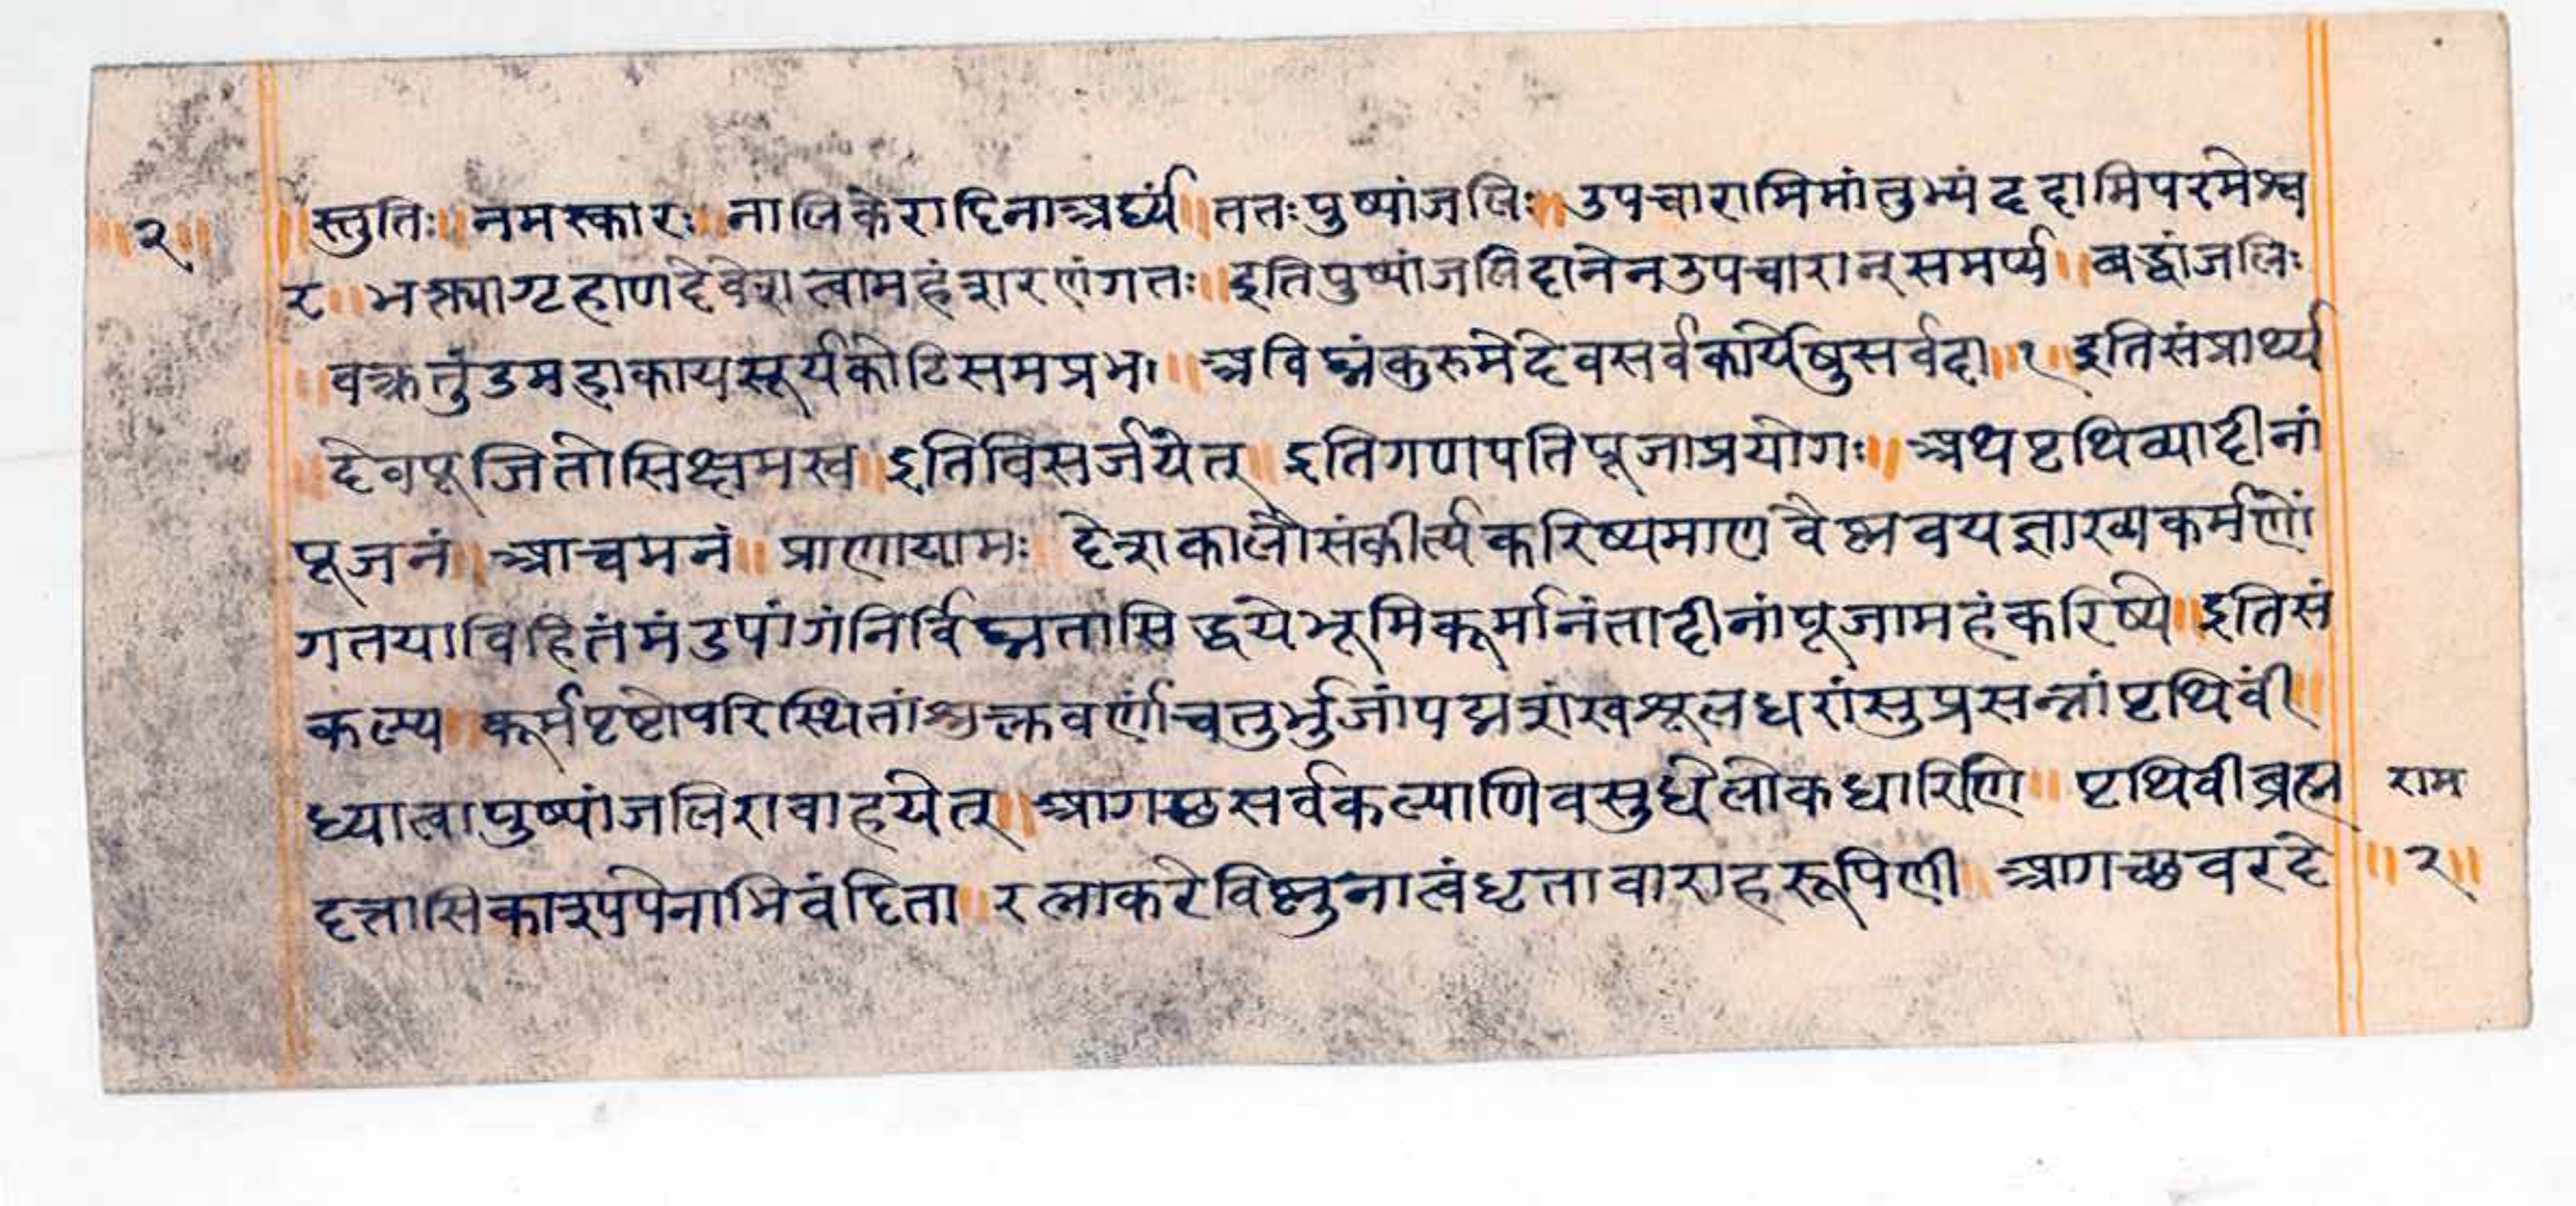 ॥२॥ ॥स्तुतिः॥ नमस्कारः॥ नालिकेरादिनाअर्घ्यं॥ ततःपुष्पांजलिः॥ उपचारामिमांतुभ्यंददामिपरमेश्व
र॥ भक्त्यागृहाणदेवेशत्वामहंशरणंगतः॥ इतिपुष्पांजलिदानेनउपचारान्समर्प्य॥ बद्धांजलिः
॥वक्रतुंडमहाकायसूर्यकोटिसमप्रभ॥ अविघ्नंकुरुमेदेवसर्वकार्येषुसर्वदा॥१॥इतिसंप्रार्थ्य
॥देवपूजितोसिक्षमस्व॥इतिविसर्जयेत्॥ इतिगणपतिपूजाप्रयोगः॥ अथपृथिव्यादीनां
पूजनं॥ आचमनं॥ प्राणायामः देशकालौसंकीर्त्यकरिष्यमाणवैष्णवयज्ञाख्यकर्मणों
गतयाविहितंमंडपांगंनिर्विघ्नतासिद्धयेभूमिकूर्मानंतादीनांपूजामहंकरिष्ये॥इतिसं
कल्प्य॥ कूर्मपृष्टोपरिस्थितांशुक्लवर्णांचतुर्भुजांपद्मशंखशूलधरांसुप्रसन्नांपृथिवीं॥
ध्यात्वापुष्पांजलिरावाहयेत्॥ आगछसर्वकल्याणिवसुधेलोकधारिणि॥ पृथिवीब्रह्म राम
दत्तासिकाश्यपेनाभिवंदिता॥ रत्नाकरेविष्णुनात्वंधृतावाराहरूपिणी॥ आगच्छवरदे ॥२॥